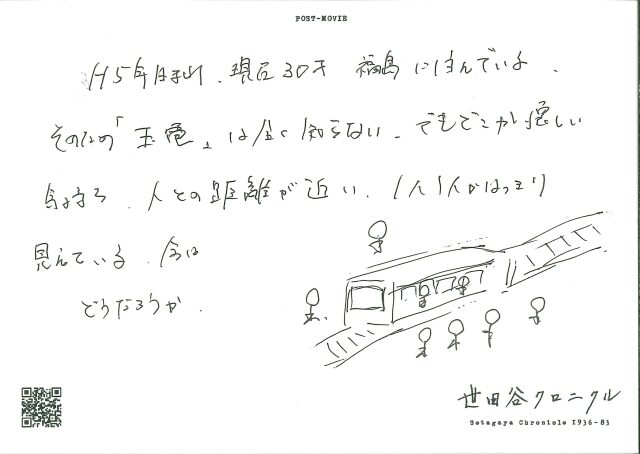 POST-MOVIE
H5年生まれ、現在30才 福島に住んでいる。
そのため「玉電」は全く知らない。でもどこか優しい
気持ち、人との距離が近い、1人1人がはっきり
見えている。今は
どうだろうか。
世田谷クロニクル
Setagaya Chronicle 1936-83